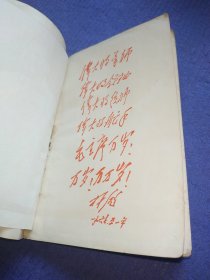 伟大的导师
伟大的领袖
伟大的统帅
伟大的舵手
毛主席万岁！
万岁！万万岁！
林彪